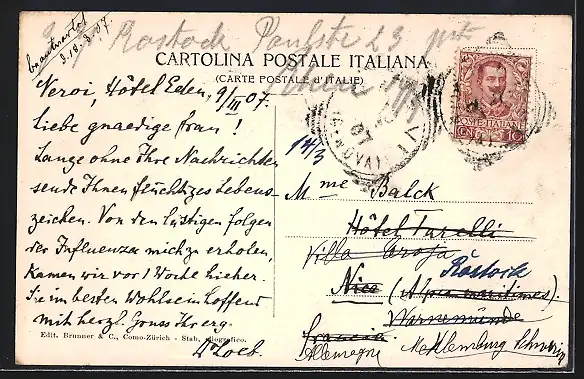 Rostock Paulstr 23 ptr
beantwortet
3.18.3.07
CARTOLINA POSTALE ITALIANA
(CARTE POSTALE D'ITALIE)
Nervi, Hôtel Eden, 9/III 07.
Liebe gnaedige Frau!
Lange ohne Ihre Nachrichten
sende Ihnen flüchtiges Lebens-
zeichen. Von den lästigen Folgen
der Influenza mich zu erholen,
kamen wir vor 1 Woche hieher.
Sie im besten Wohlsein hoffend
mit herzl. Gruss Ihr erg.
A Loeb.
Edit. Brunner & C., Como-Zürich - Stab. Eliografico.
POSTE ITALIANE
(GENOVA)
07
14/3
Mme Balck
Hôtel Turelli
Villa Arosa
Rostock
Nice (Alpes maritimes).
Warnemünde
Francia
Allemagne Mecklemburg Schwerin